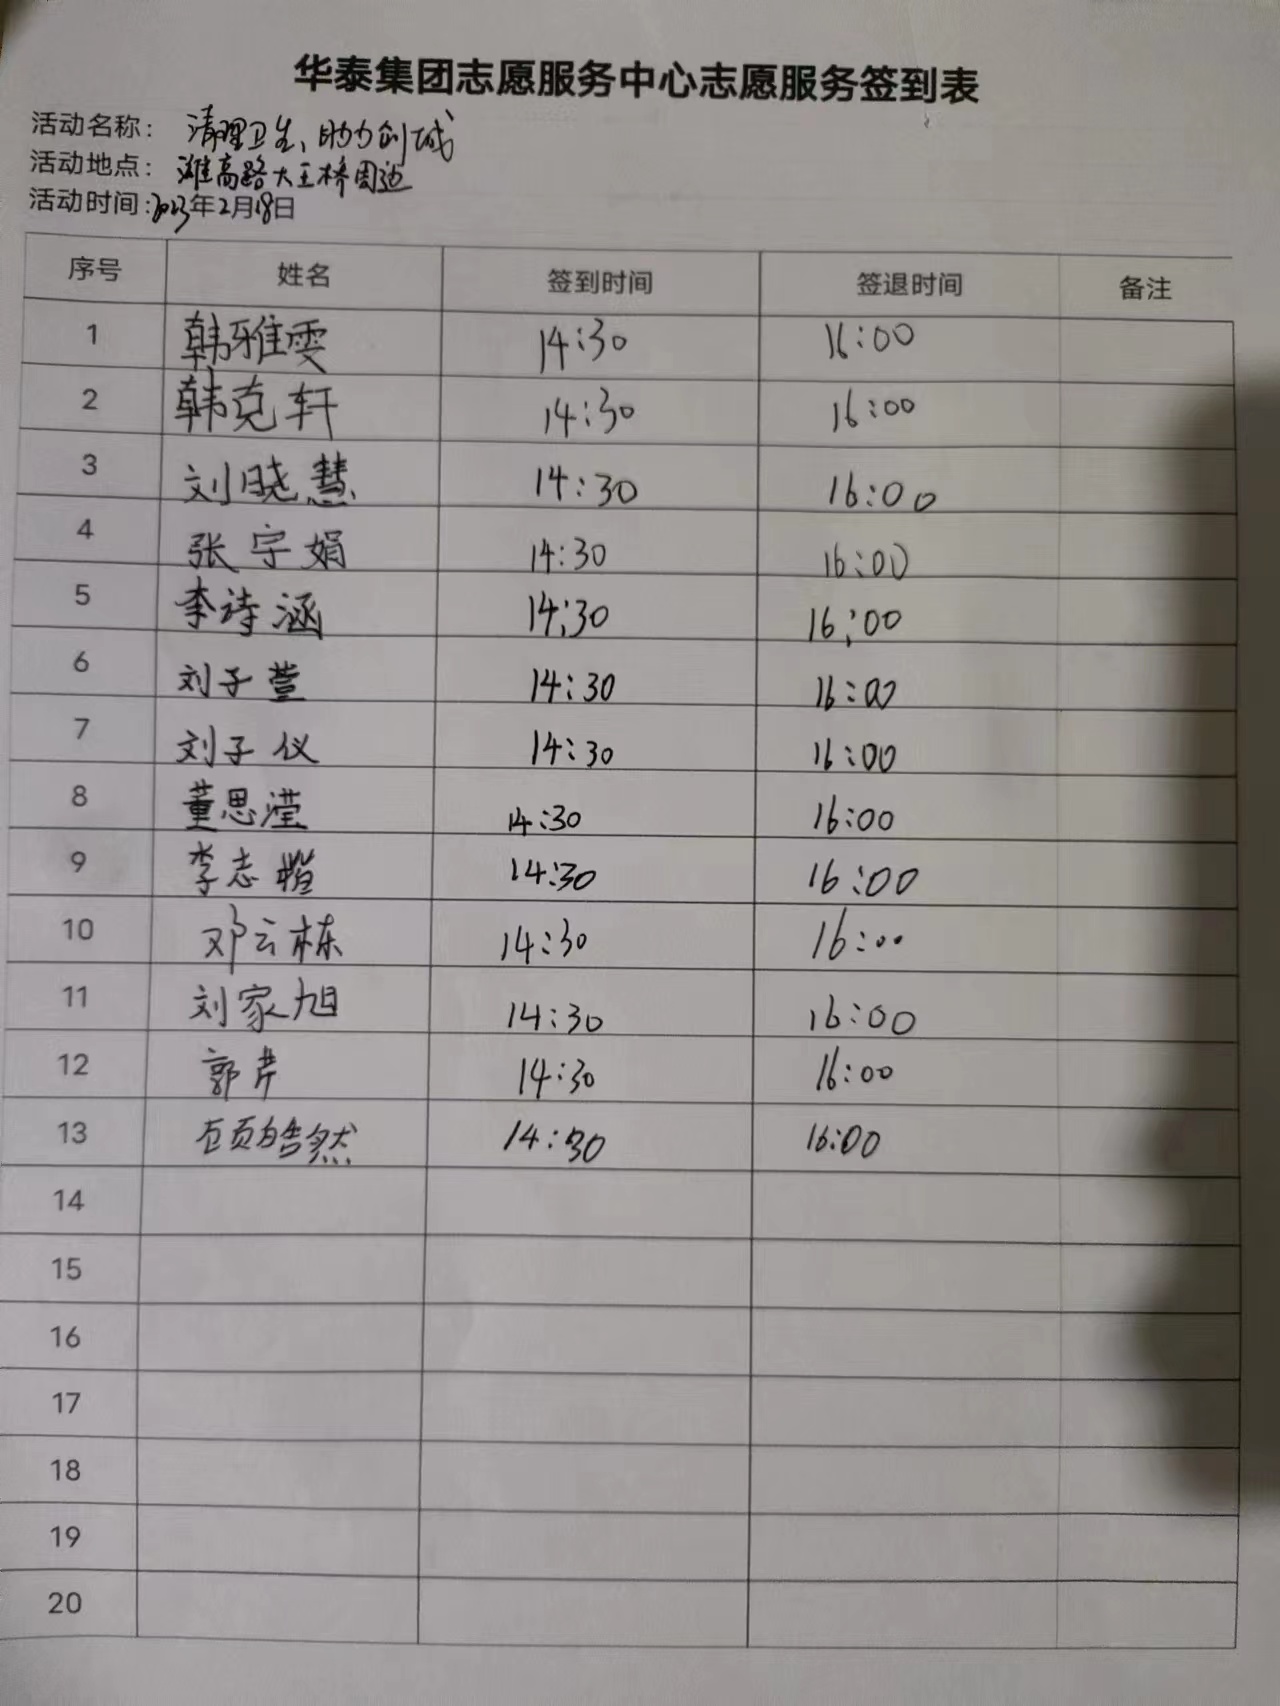 华泰集团志愿服务中心志愿服务签到表
活动名称： 清理卫生、助力创城
活动地点： 潍高路大王桥周边
活动时间:2023年2月18日
序号 姓名 签到时间 签退时间 备注
1 韩雅雯 14:30 16:00
2 韩克轩 14:30 16:00
3 刘晓慧 14:30 16:00
4 张宁娟 14:30 16:00
5 李诗涵 14:30 16:00
6 刘子萱 14:30 16:00
7 刘子仪 14:30 16:00
8 董思滢 14:30 16:00
9 李志楷 14:30 16:00
10 邓云栋 14:30 16:00
11 刘家旭 14:30 16:00
12 郭芹 14:30 16:00
13 皓然 14:30 16:00
14
15
16
17
18
19
20